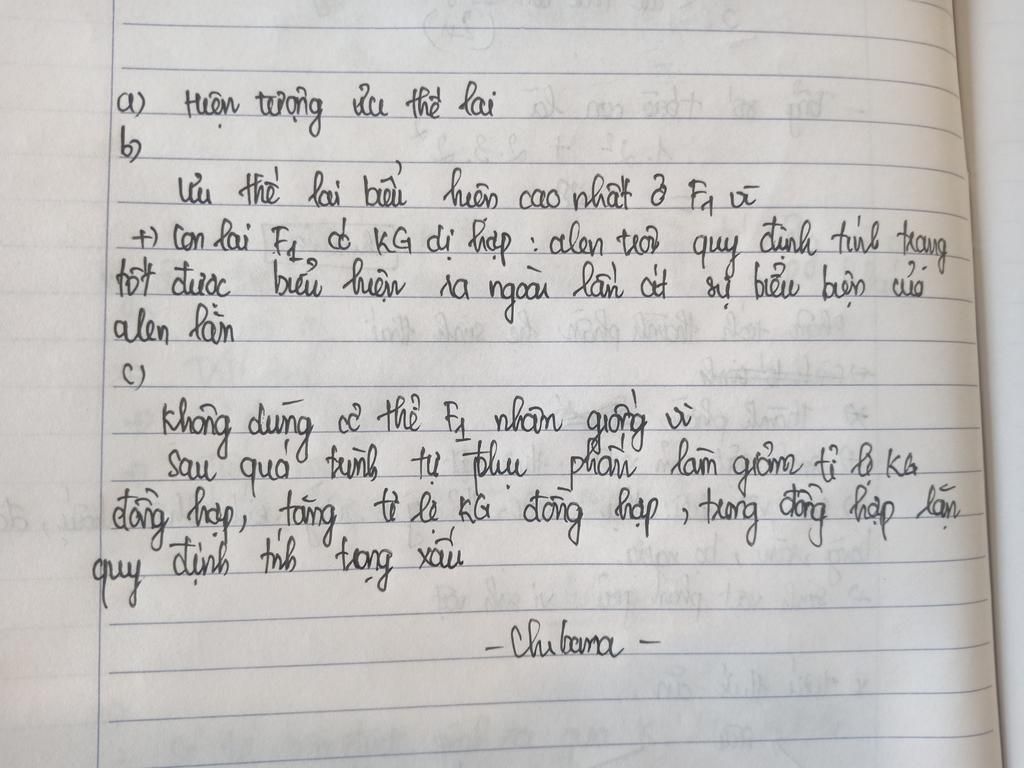 a) Hiện tượng ưu thế lai
b)
Ưu thế lai biểu hiện cao nhất ở F1 vì
+) Con lai F1 có KG dị hợp : alen trội quy định tính trạng
tốt được biểu hiện ra ngoài lấn át sự biểu hiện của
alen lặn
c)
Không dùng cơ thể F1 nhân giống vì
Sau quá trình tự thụ phấn làm giảm tỉ lệ KG
đồng hợp, tăng tỉ lệ KG đồng hợp, trong đồng hợp lặn
quy định tính trạng xấu
- Chubama -